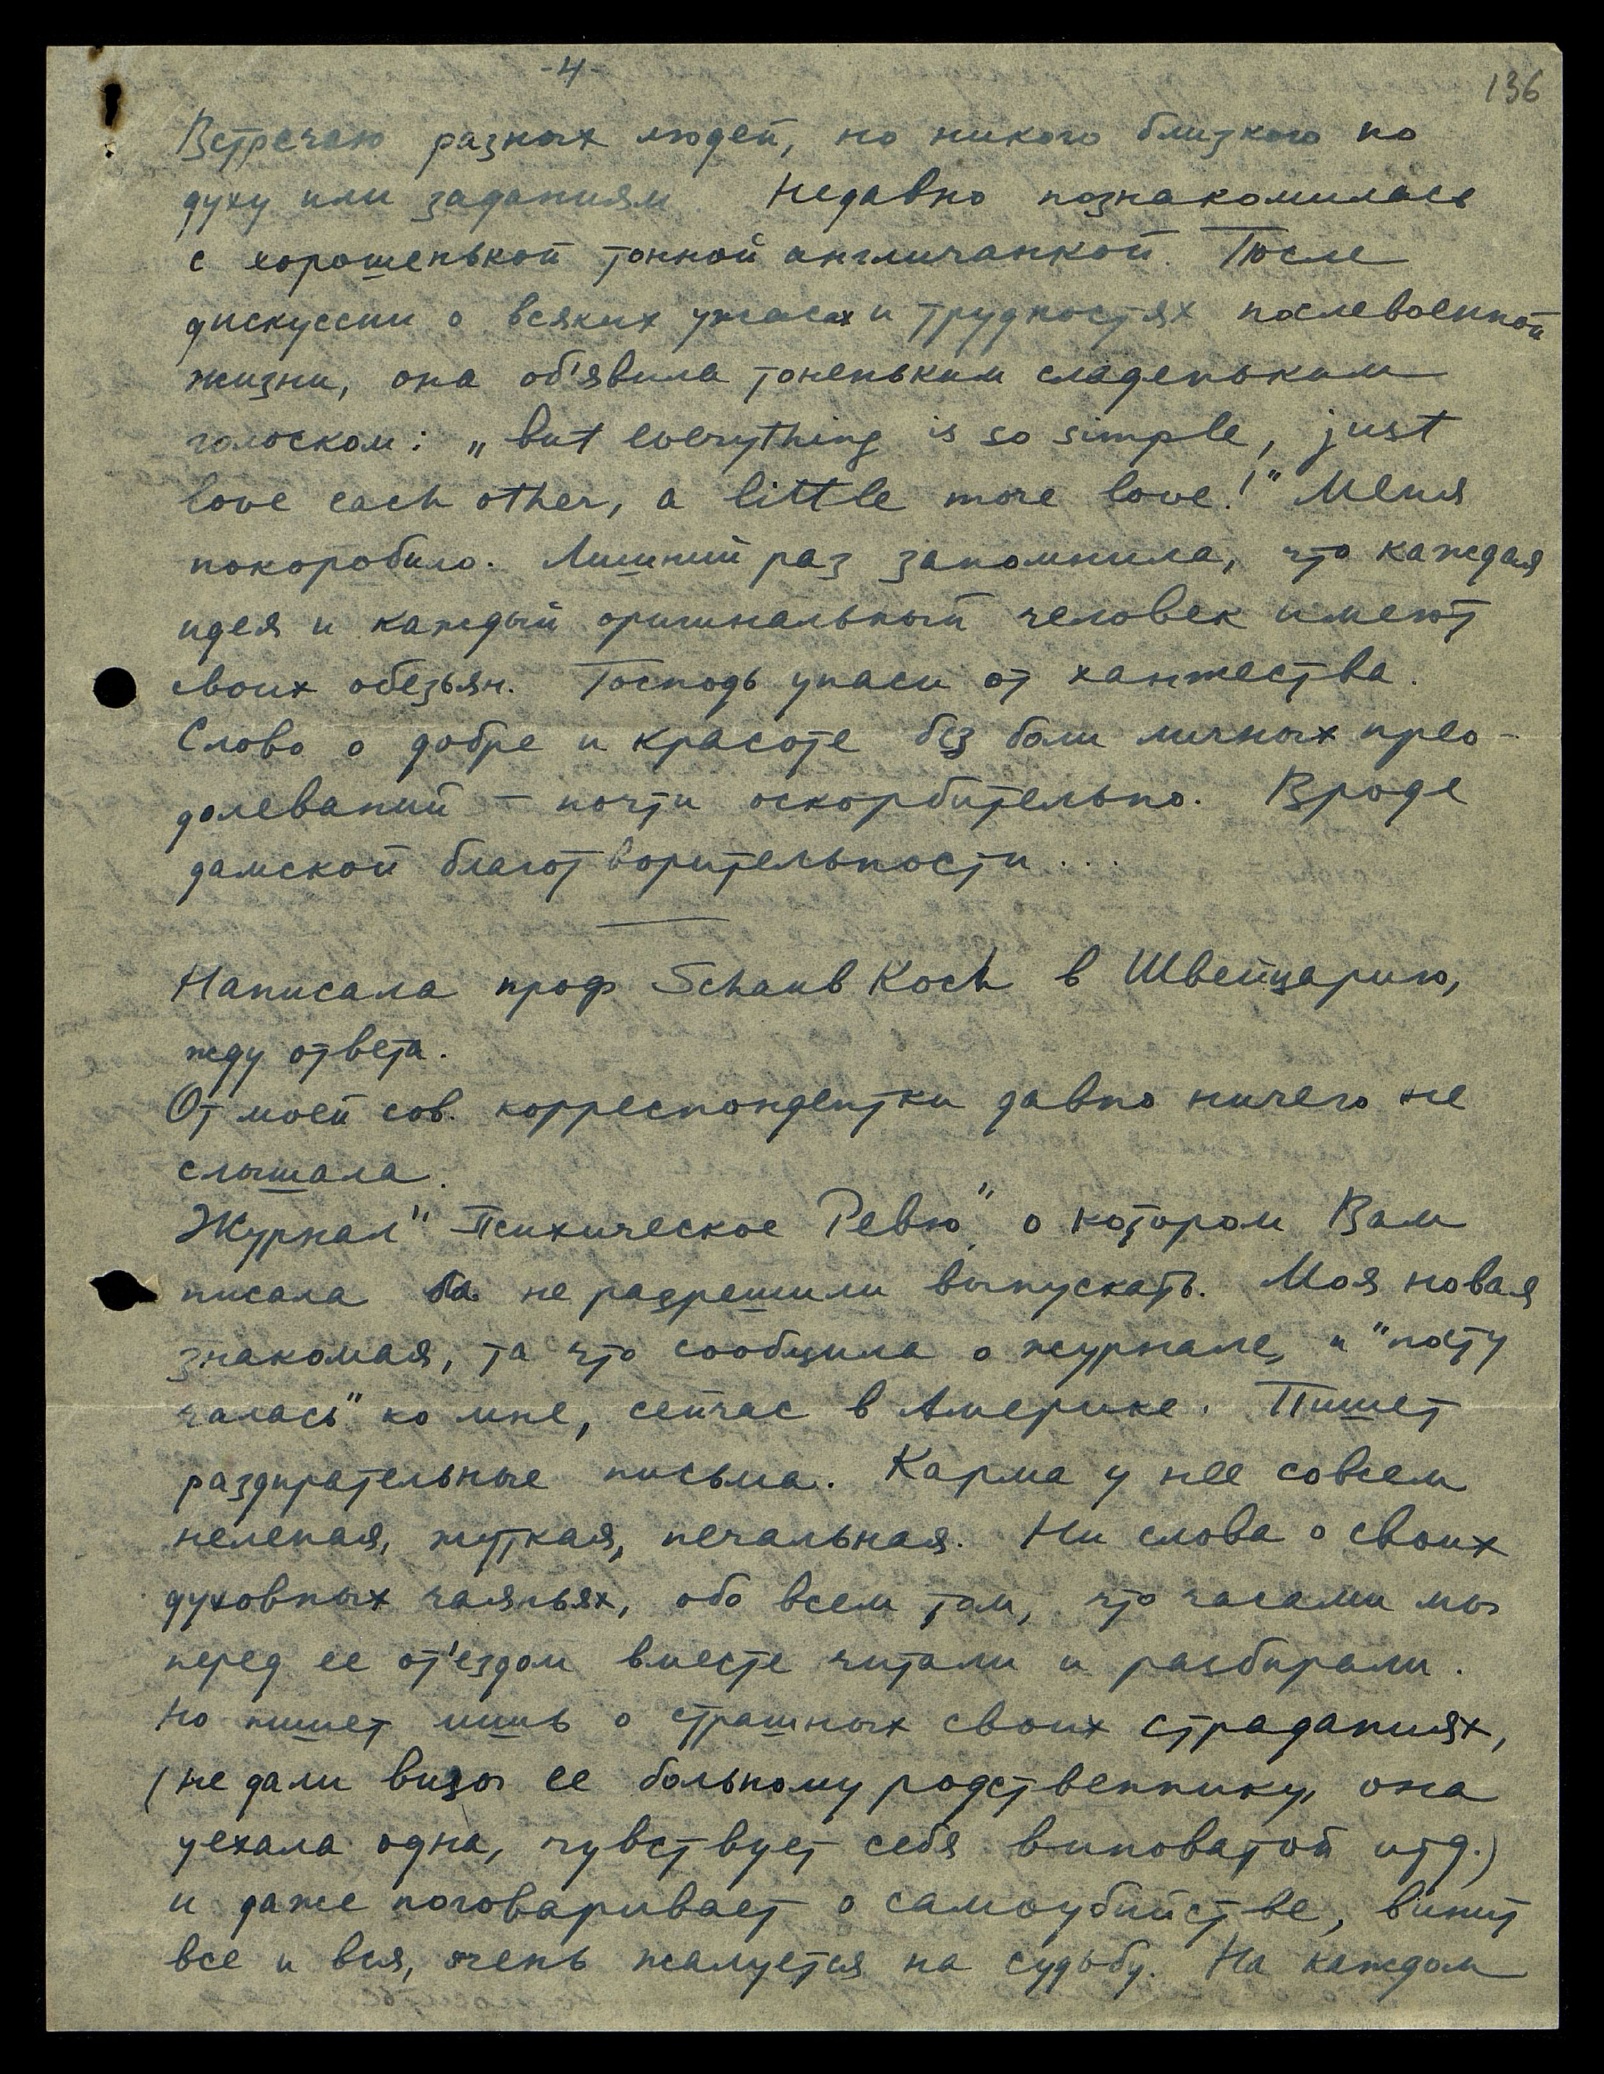 -4-
136
Встречаю разных людей, но никого близкого по
духу или заданиям. Недавно познакомилась
с хорошенькой тонной англичанкой. После
дискуссии о всяких ужасах и трудностях послевоенной
жизни, она об'явила тоненьким сладеньким
голоском: „but everything is so simple, just
love each other, a little more love!" Меня
покоробило. Лишний раз запомнила, что каждая
идея и каждый оригинальный человек имеют
своих обезьян. Господь упаси от ханжества.
Слово о добре и красоте без боли личных прео-
долеваний – почти оскорбительно. Вроде
дамской благотворительности...
Написала проф Schaub Koch в Швейцарию,
жду ответа.
От моей сов. корреспондентки давно ничего не
слышала.
Журнал "Психическое Ревю" о котором Вам
писала не разрешили выпускать. Моя новая
знакомая, та что сообщила о журнале, и "посту
чалась" ко мне, сейчас в Америке. Пишет
раздирательные письма. Карма у нее совсем
нелепая, жуткая, печальная. Ни слова о своих
духовных чаяньях, обо всем том, что часами мы
перед ее от'ездом вместе читали и разбирали.
Но пишет лишь о страшных своих страданиях,
(не дали визы ее больному родственнику, она
уехала одна, чувствует себя виноватой итд.)
и даже поговаривает о самоубийстве, винит
все и вся, очень жалуется на судьбу. На каждом